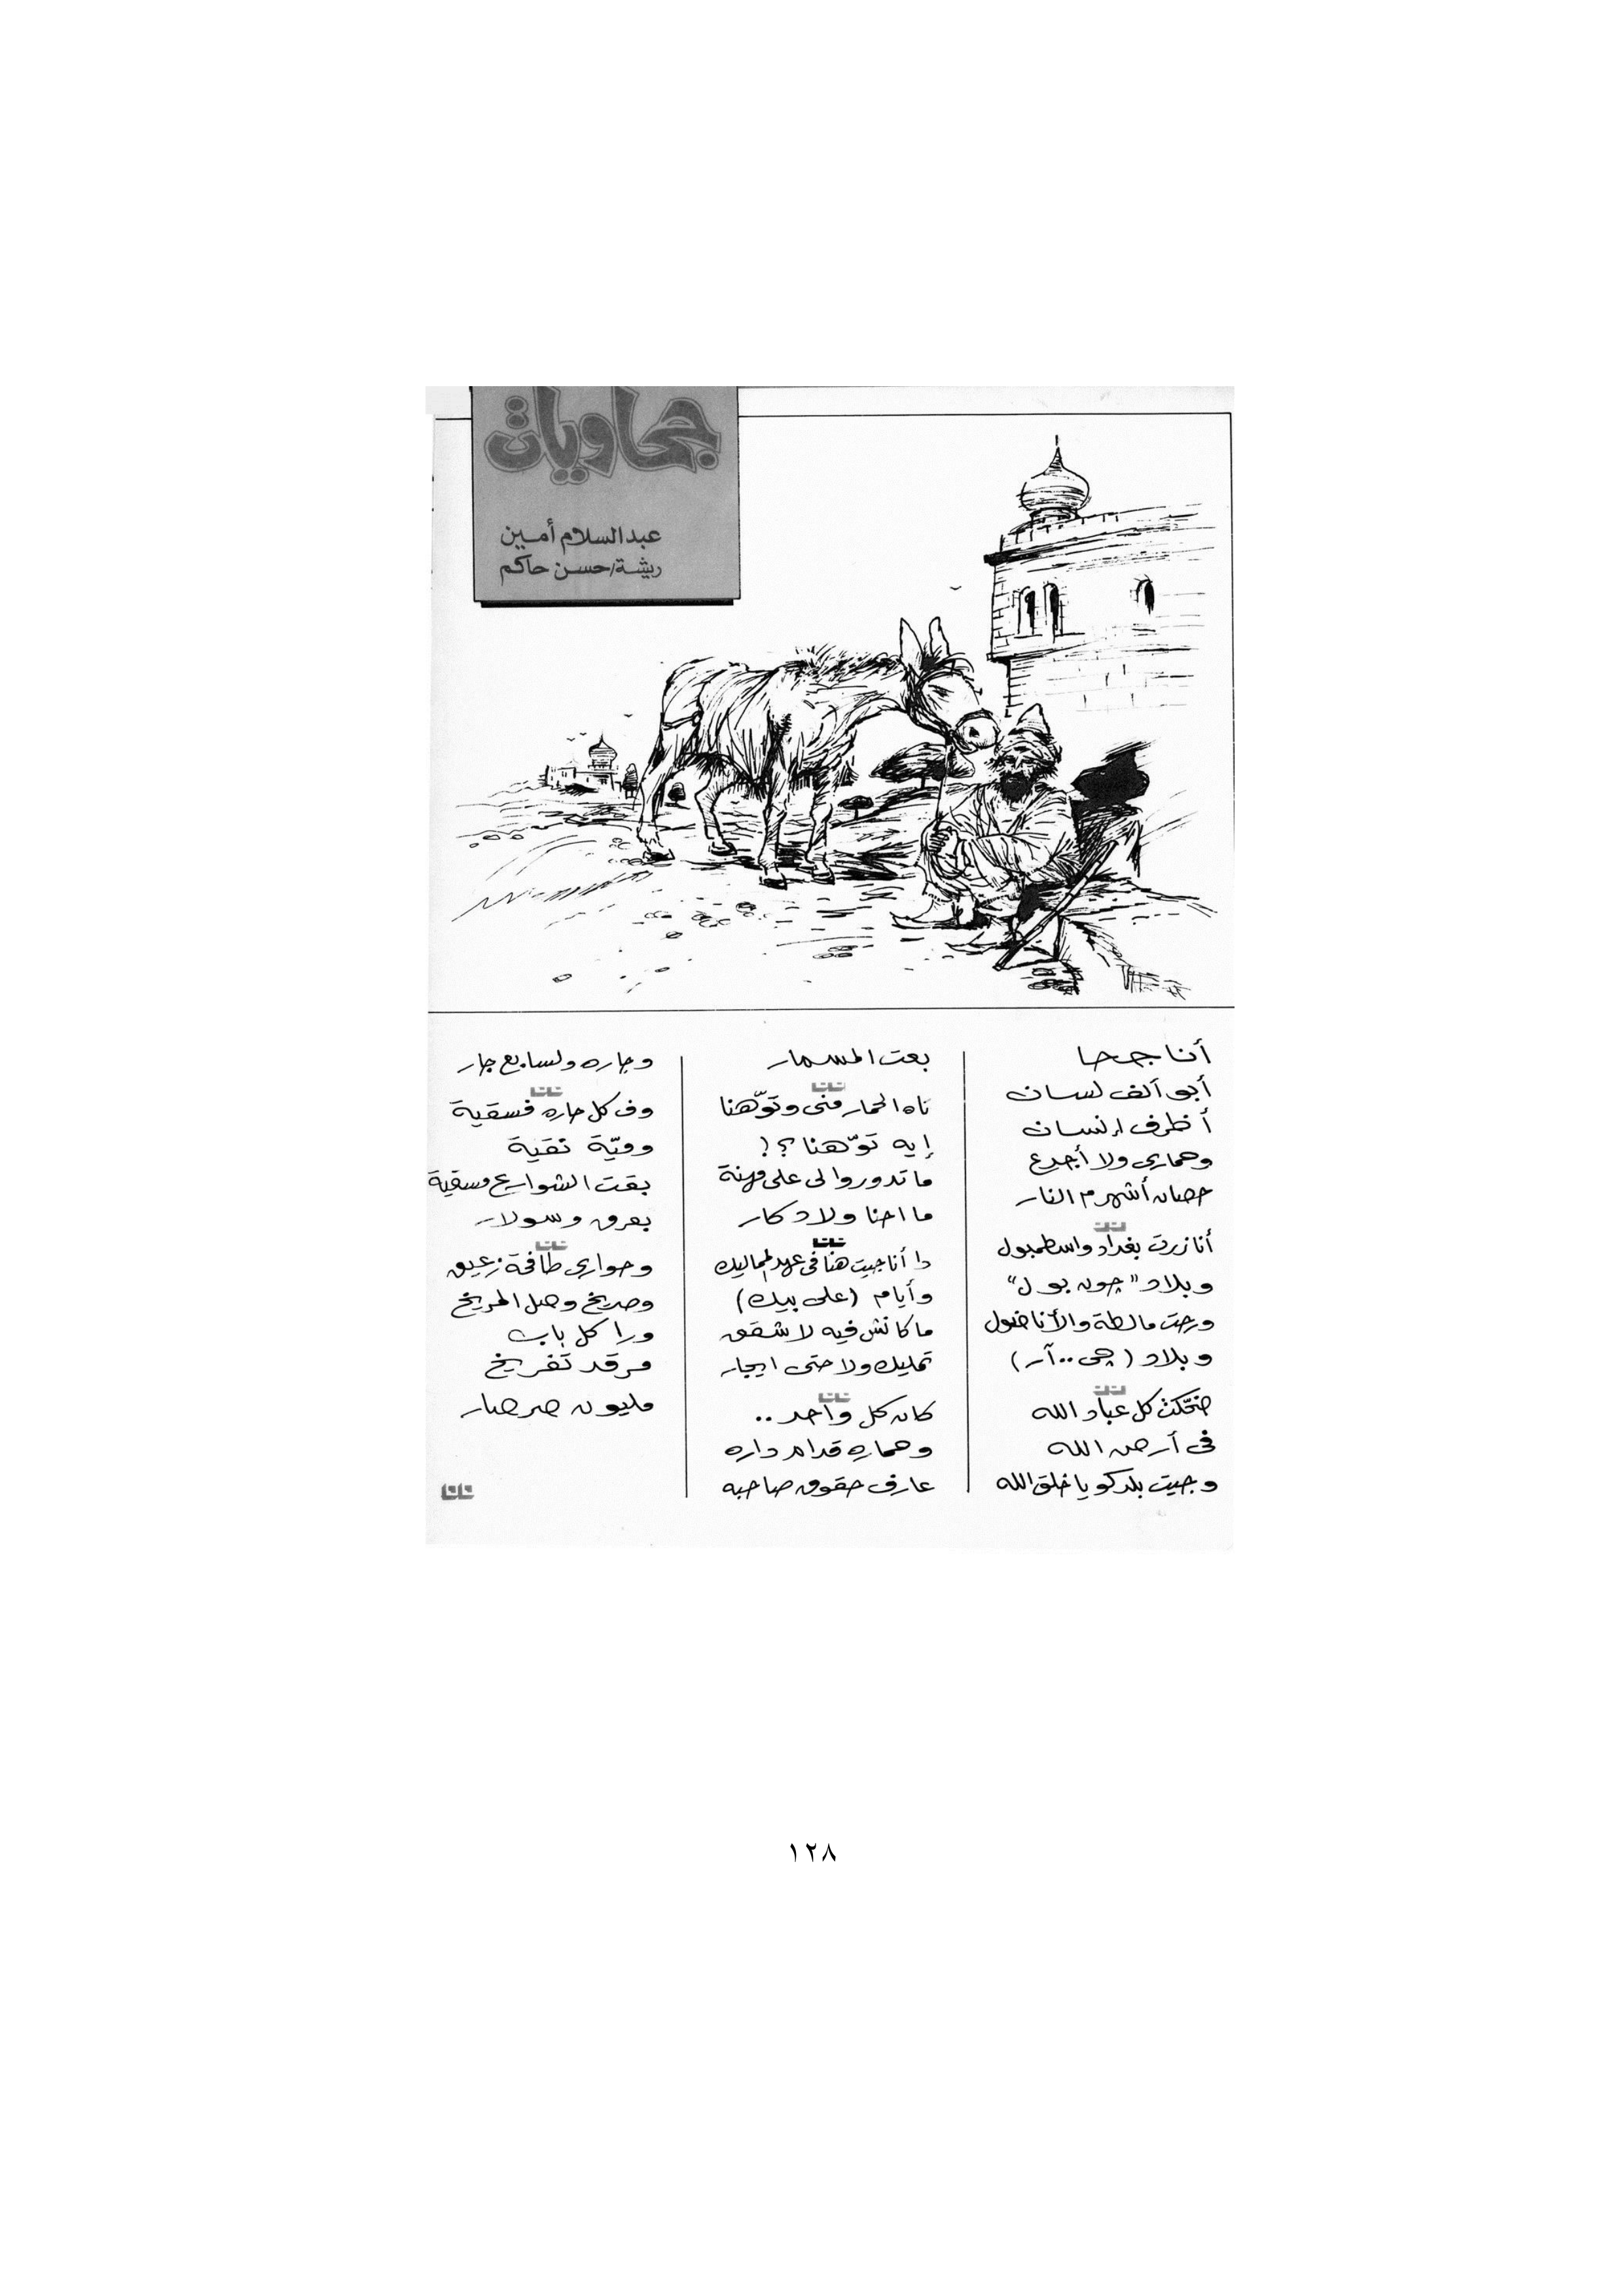 جحاويات
عبدالسلام أمين
ريشة/حسن حاكم
أنا جحا
أبو ألف لسان
أظرف إنسان
وحماري ولا أجدع
حصان أشهر م النار
أنا زرت بغداد واسطمبول
وبلاد "چون بول"
ورحت مالطة والأناضول
وبلاد (چى..آر)
ضحّكت كل عباد الله
فى أرض الله
وجيت بلدكو يا خلق الله
بعت المسمار
تاه الحمار منى وتوّهنا
إيه توّهنا ؟!
ما تدوروا لى على مهنة
ما احنا ولاد كار
دا أنا جيت هنا فى عهد المماليك
وأيام (على بيك)
ما كانش فيه لا شقق
تمليك ولا حتى ايجار
كان كل واحد ..
وحماره قدام داره
عارف حقوق صاحبه
وجاره ولسابع جار
وف كل حاره فسقية
وميّة نقية
بقت الشوارع مسقية
بعرق وسولار
وحوارى طافحة زعيق
وصريخ وصل المريخ
ورا كل باب
مرقد تفريخ
مليون صرصار
١٢٨